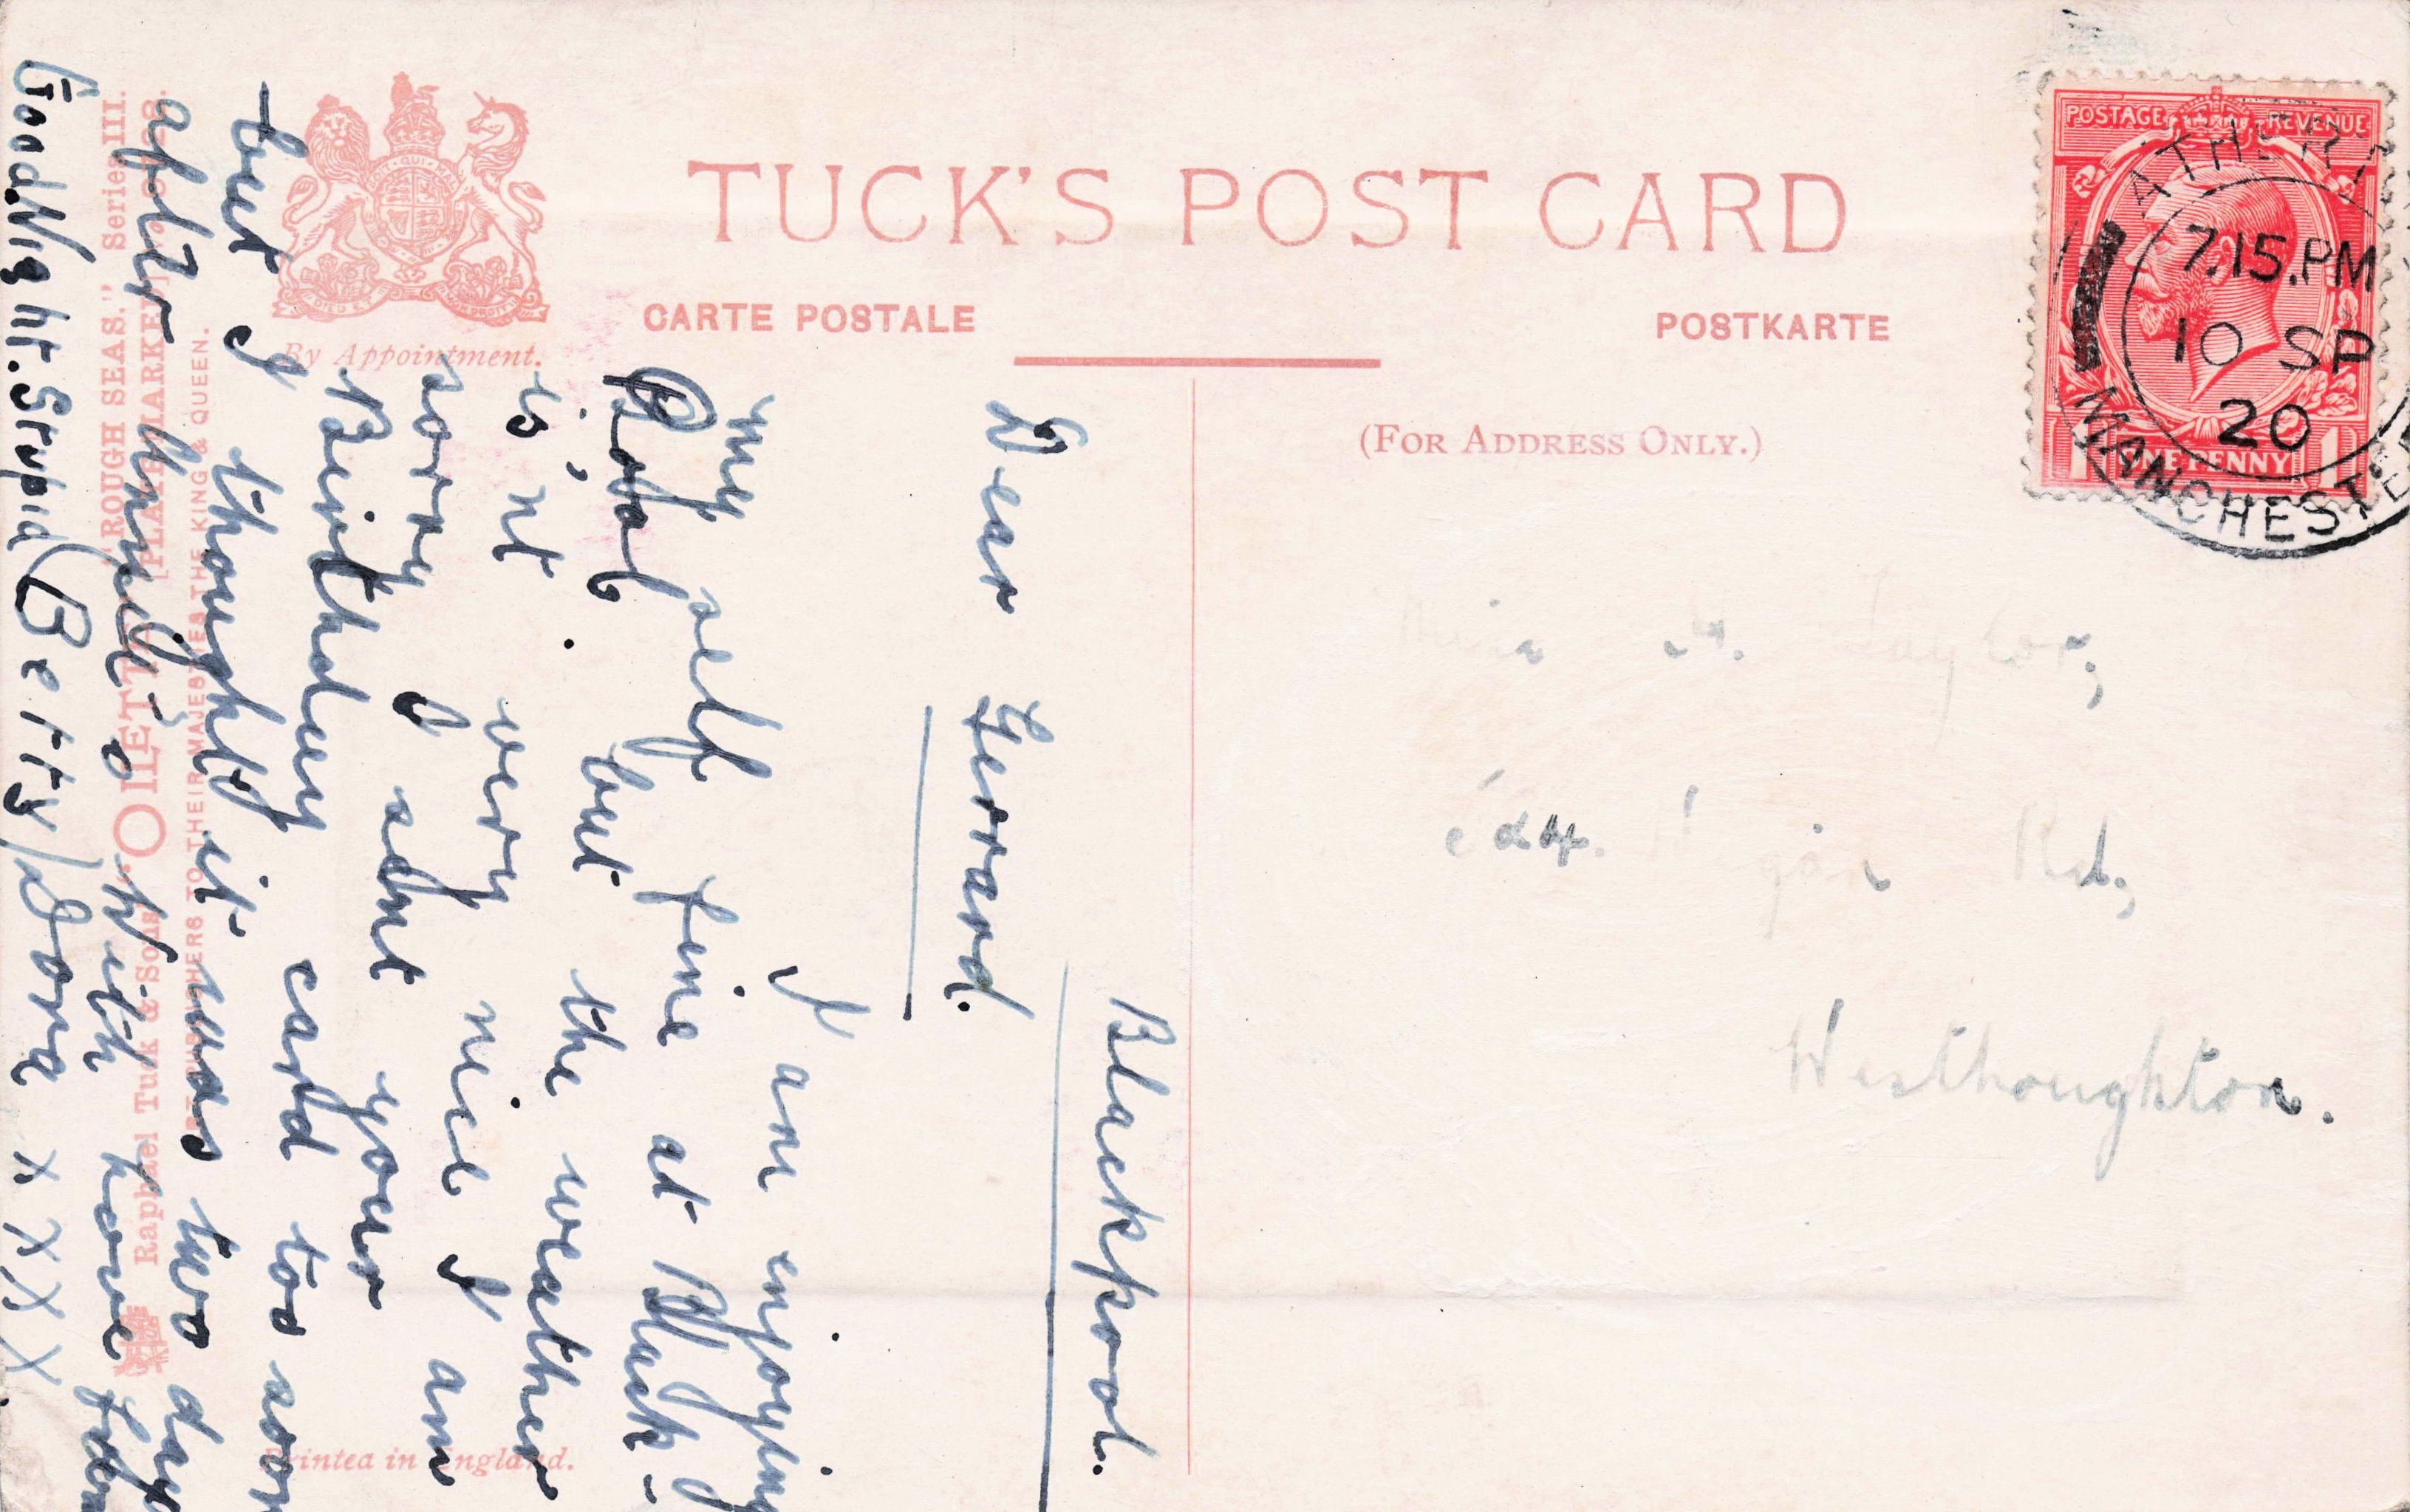 TUCK'S POST CARD
CARTE POSTALE
POSTKARTE
By Appointment.
(FOR ADDRESS ONLY.)
POSTAGE REVENUE
ONE PENNY
7.15.PM
10 SP
20
MANCHESTER
Taylor,
Rd,
Westhoughton.
Blackpool.
Dear Gerrard.
I am enjoying
my self fine at Black-
Pool but the weather
is, nt. very nice I am
sorry I sent your
Birthday card too soon
but I thought it was two days
after Annie's With love from
Good.Night.Stupid (Betty) Dora x x x x
"ROUGH SEAS." Series III.
Raphael Tuck & Sons' "OILETTE"
PUBLISHERS TO THEIR MAJESTIES THE KING & QUEEN.
Printed in England.